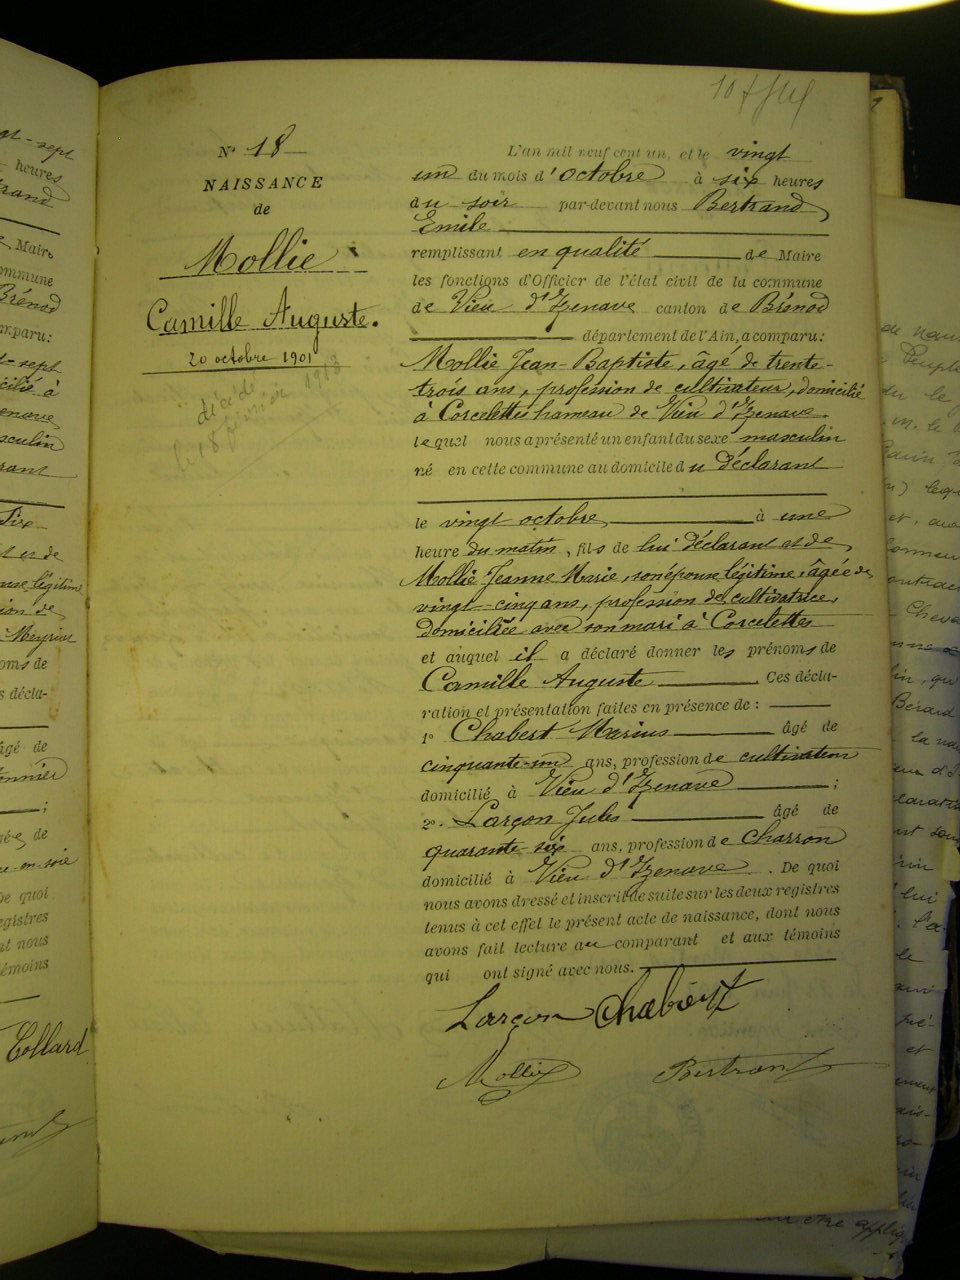 N° 18
NAISSANCE
de
Mollie
Camille Auguste.
20 octobre 1901
décédé
le 18 février 1913
L'an mil neuf cent un, et le vingt
un du mois d'octobre à six heures
du soir par-devant nous Bertrand
Emile
remplissant en qualité de Maire
les fonctions d'Officier de l'état civil de la commune
de Vieu d'Izenave canton de Brénod
département de l'Ain, a comparu:
Mollie Jean-Baptiste, âgé de trente-
trois ans, profession de cultivateur, domicilié
à Corcelettes hameau de Vieu d'Izenave.
lequel nous a présenté un enfant du sexe masculin
né en cette commune au domicile du déclarant
le vingt octobre, à une
heure du matin, fils de lui déclarant et de
Mollie Jeanne Marie, son épouse légitime, âgée de
vingt-cinq ans, profession de cultivatrice,
domiciliée avec son mari à Corcelettes
et auquel il a déclaré donner les prénoms de
Camille Auguste Ces décla-
ration et présentation faites en présence de :
1° Chabert Marius âgé de
cinquante-un ans, profession de cultivateur
domicilié à Vieu d'Izenave ;
2°. Larçon Jules âgé de
quarante-six ans, profession de charron
domicilié à Vieu d'Izenave. De quoi
nous avons dressé et inscrit de suite sur les deux registres
tenus à cet effet le présent acte de naissance, dont nous
avons fait lecture au comparant et aux témoins
qui ont signé avec nous.
Larçon Chabert
Mollie Bertrand